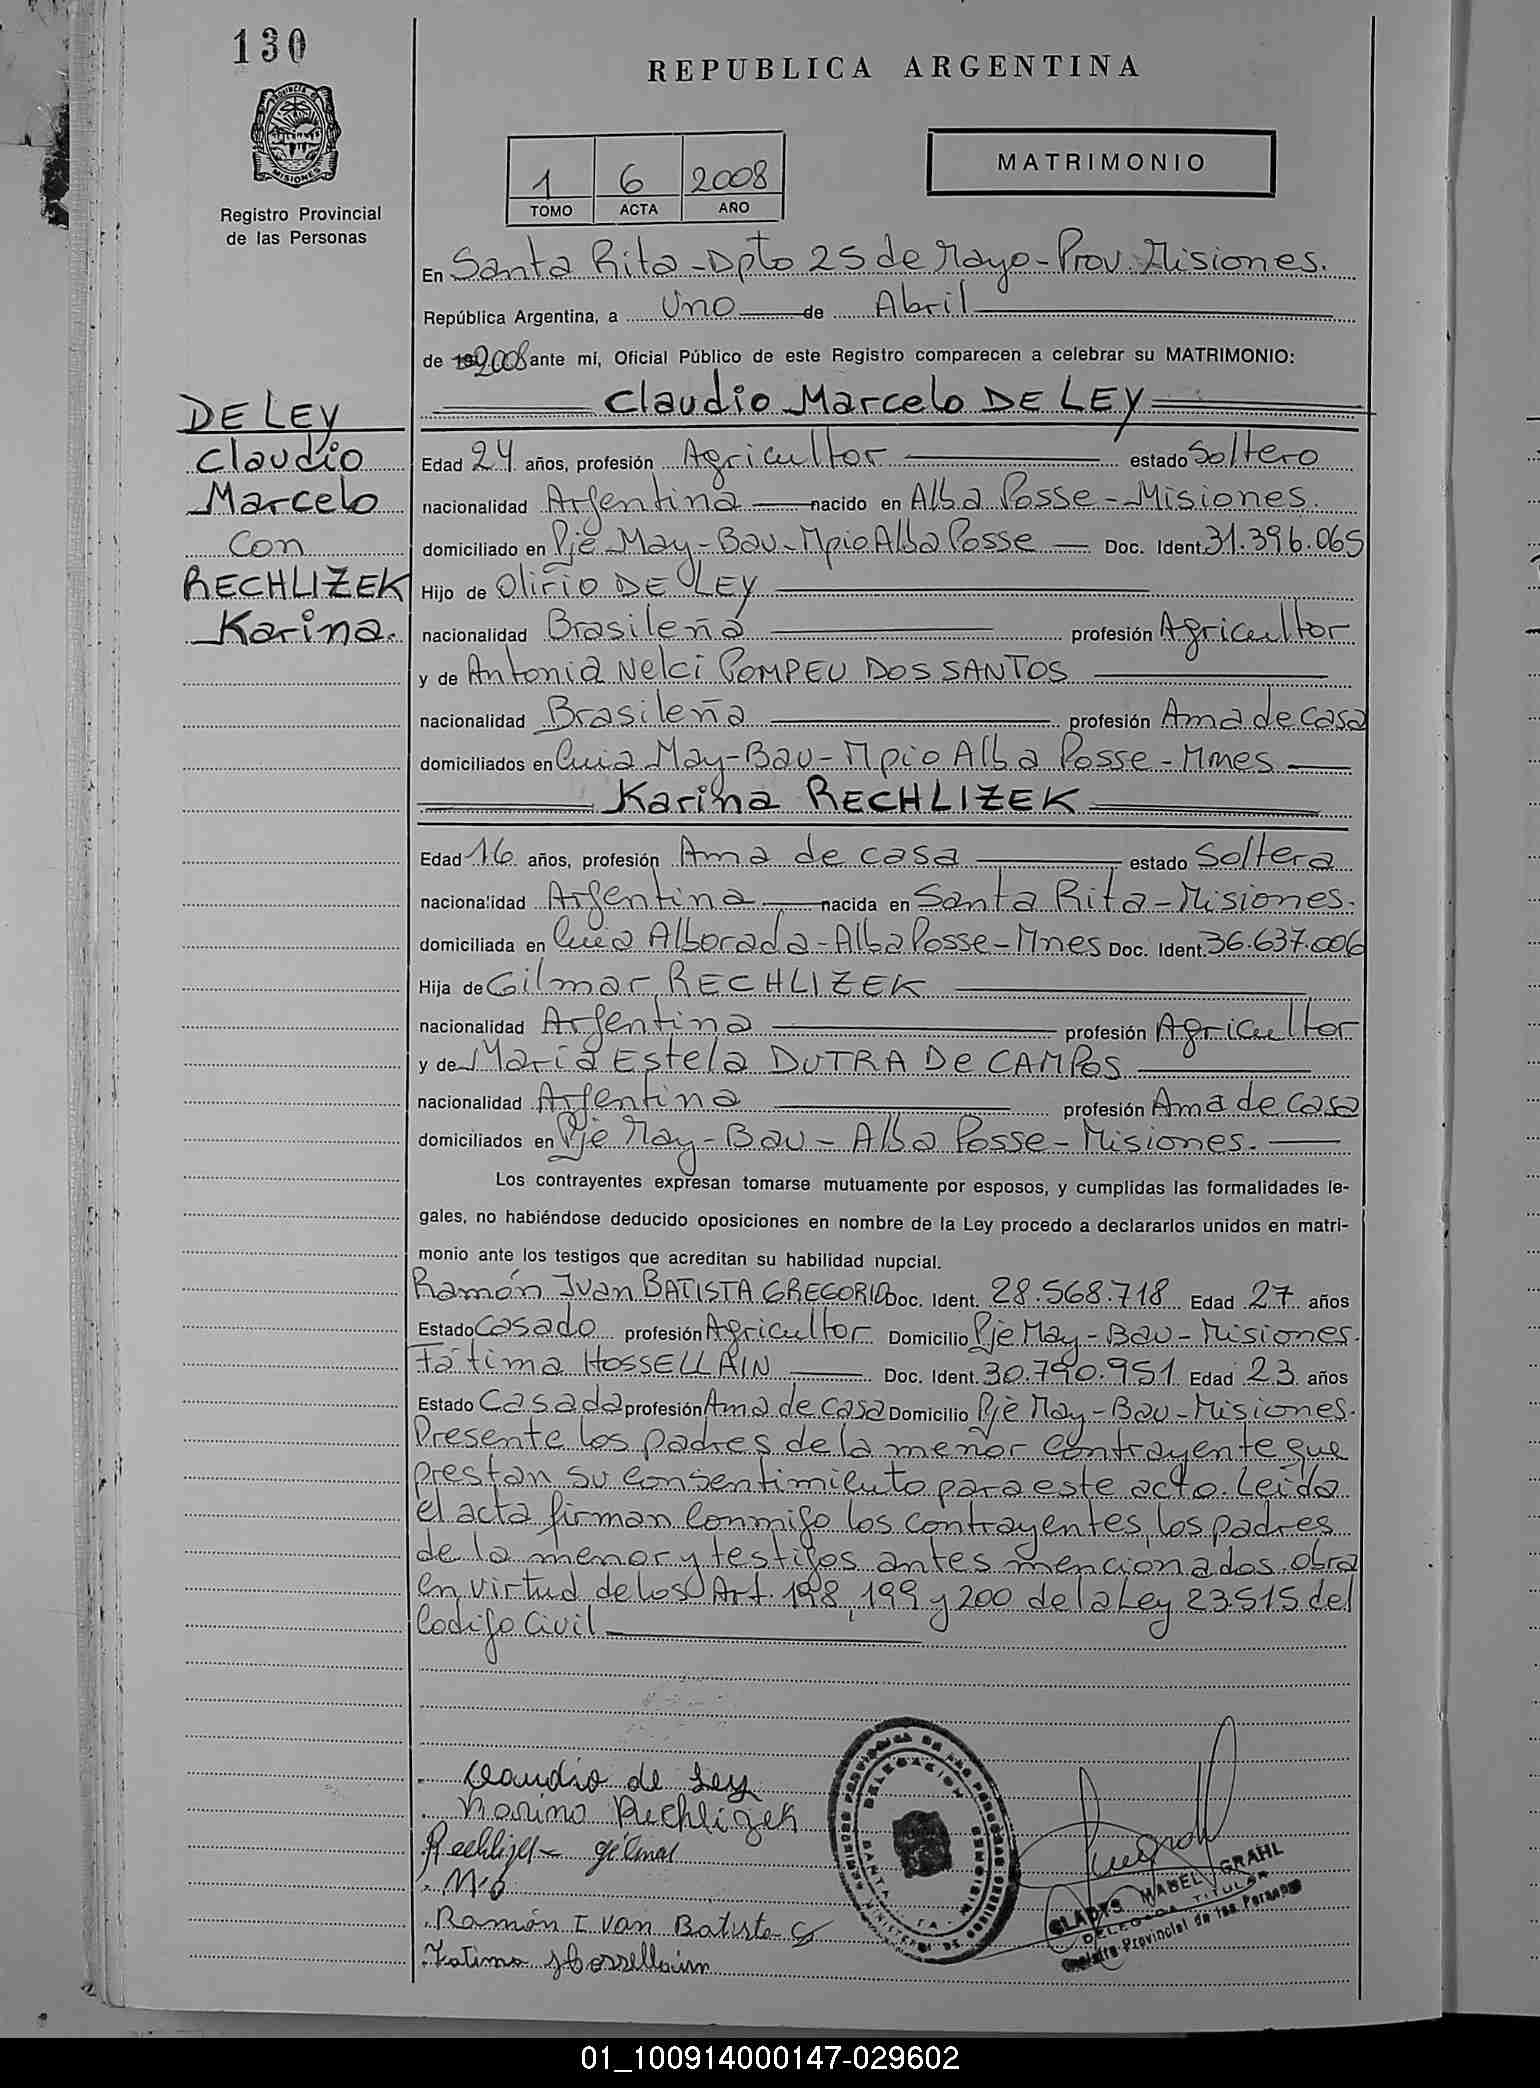 130
REPUBLICA ARGENTINA
PROVINCIA DE
MISIONES
Registro Provincial
de las Personas
1 6 2008
TOMO ACTA AÑO
MATRIMONIO
En Santa Rita - Dpto 25 de Mayo - Prov. Misiones.
República Argentina, a Uno de Abril
de 192008 ante mí, Oficial Público de este Registro comparecen a celebrar su MATRIMONIO:
Claudio Marcelo DE LEY
DE LEY
Claudio
Marcelo
con
RECHLIZEK
Karina.
Edad 24 años, profesión Agricultor estado Soltero
nacionalidad Argentina nacido en Alba Posse - Misiones.
domiciliado en Pje May-Bau - Mpio Alba Posse - Doc. Ident. 31.396.065
Hijo de Olirio DE LEY
nacionalidad Brasileña profesión Agricultor
y de Antonia Nelci POMPEU DOS SANTOS
nacionalidad Brasileña profesión Ama de casa
domiciliados en May-Bau - Mpio Alba Posse - Mnes
Karina RECHLIZEK
Edad 16 años, profesión Ama de casa estado Soltera
nacionalidad Argentina nacida en Santa Rita - Misiones.
domiciliada en Alborada - Alba Posse - Mnes Doc. Ident. 36.637.006
Hija de Gilmar RECHLIZEK
nacionalidad Argentina profesión Agricultor
y de María Estela DUTRA De CAMPOS
nacionalidad Argentina profesión Ama de casa
domiciliados en Pje May-Bau - Alba Posse - Misiones.
Los contrayentes expresan tomarse mutuamente por esposos, y cumplidas las formalidades le-
gales, no habiéndose deducido oposiciones en nombre de la Ley procedo a declararlos unidos en matri-
monio ante los testigos que acreditan su habilidad nupcial.
Ramón Ivan BATISTA GREGORIO Doc. Ident. 28.568.718 Edad 27 años
Estado Casado profesión Agricultor Domicilio Pje May-Bau - Misiones.
Fátima HOSSELLAIN Doc. Ident. 30.790.951 Edad 23 años
Estado Casada profesión Ama de casa Domicilio Pje May-Bau - Misiones.
Presente los padres de la menor contrayente que
prestan su consentimiento para este acto. Leída
el acta firman conmigo los contrayentes, los padres
de la menor y testigos antes mencionados. obra
en virtud de los Art. 198, 199 y 200 de la Ley 23.515 del
Codigo Civil
Claudio de Ley
Karina Rechlizek
Rechlizek Gilmar
Ramón Ivan Batista G
Fatima Hossellain
DELEGACION
SANTA RITA
GLADYS MABEL GRAHL
DELEGADA TITULAR
Registro Provincial de las Personas
01_100914000147-029602